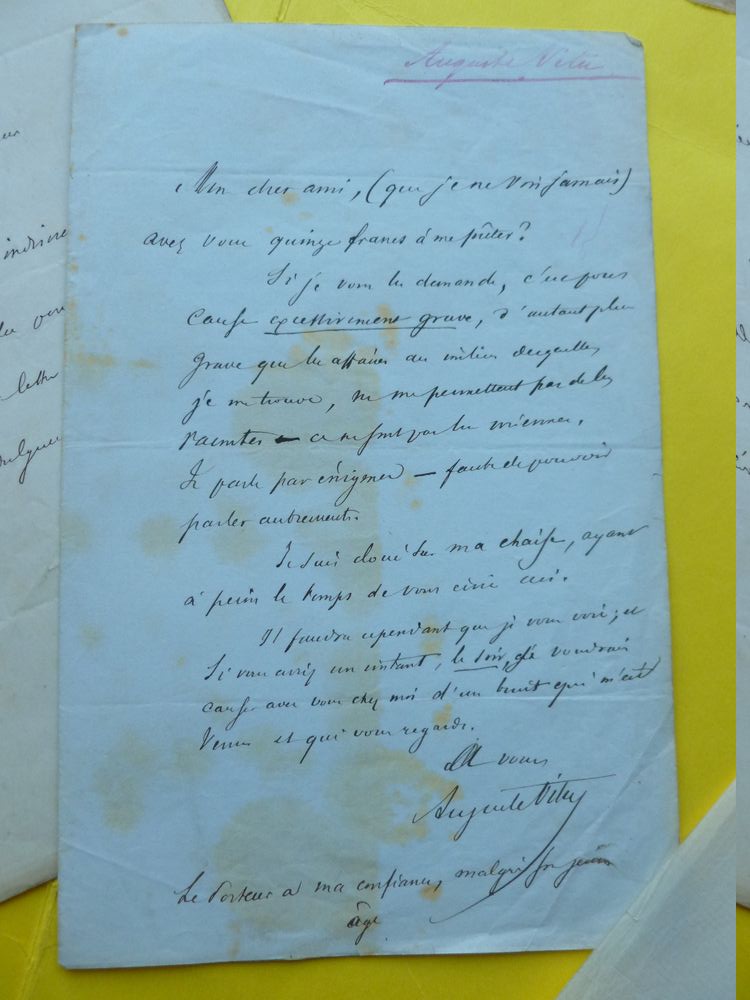 Auguste Vitu
Mon cher ami, (que je ne vois jamais)
avez vous quinze francs à me prêter?
Si je vous les demande, c'est pour
cause excessivement grave, d'autant plus
grave que les affaires au milieu desquelles
je me trouve, ne me permettent pas de les
raconter — ce ne sont pas les miennes.
Je parle par énigmes — faute de pouvoir
parler autrement.
Je suis cloué sur ma chaise, ayant
à peine le temps de vous écrire ceci.
Il faudra cependant que je vous voie; et
Si vous aviez un instant, le soir, je voudrais
causer avec vous chez moi d'un bruit qui m'est
venu et qui vous regarde.
A vous
Auguste Vitu
Le Porteur a ma confiance, malgré son jeune
âge
lettre